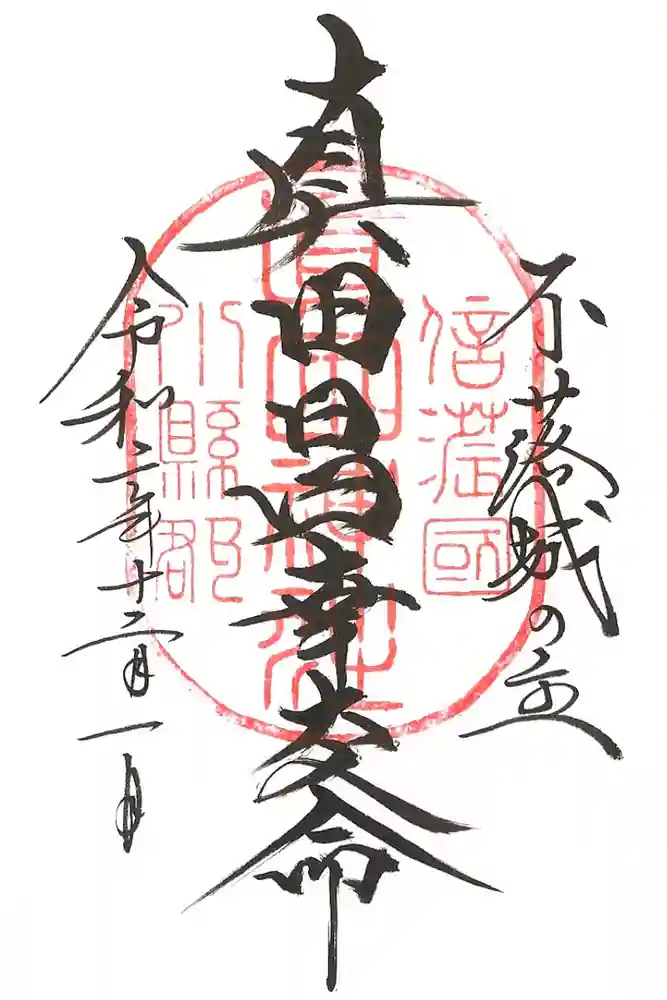 不落城の
信濃國
真田昌幸大人命
眞田神社
小縣郡
令和二年十二月一日